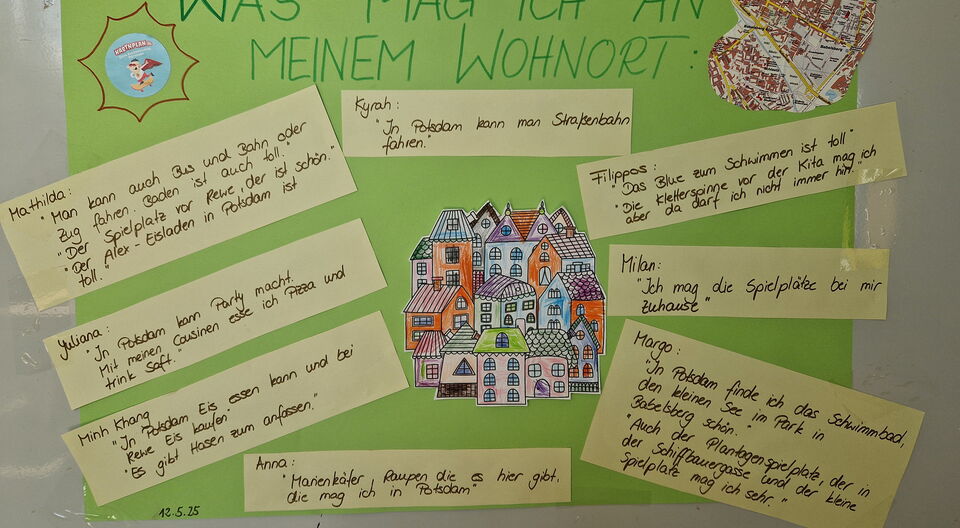 WAS MAG ICH AN
MEINEM WOHNORT:
Kyrah:
"In Potsdam kann man Straßenbahn
fahren."
Mathilda:
"Man kann auch Bus und Bahn oder
Zug fahren. Baden ist auch toll."
"Der Spielplatz vor Rewe, der ist schön."
"Der Alex-Eisladen in Potsdam ist
toll."
Filippos:
"Das Blue zum Schwimmen ist toll"
"Die Kletterspinne vor der Kita mag ich
aber da darf ich nicht immer hin."
Yuliana:
"In Potsdam kann Party macht.
Mit meinen Cousinen esse ich Pizza und
trink Saft."
Milan:
"Ich mag die Spielplätze bei mir
zuhause"
Minh Khang
"In Potsdam Eis essen kann und bei
Rewe Eis kaufen"
"Es gibt Hasen zum anfassen."
Margo:
"In Potsdam finde ich das Schwimmbad,
den kleinen See im Park in
Babelsberg schön."
"Auch der Plantagenspielplatz, der in
der Schiffbauergasse und der kleine
Spielplatz mag ich sehr."
Anna:
"Marienkäfer Raupen die es hier gibt,
die mag ich in Potsdam"
12.5.25